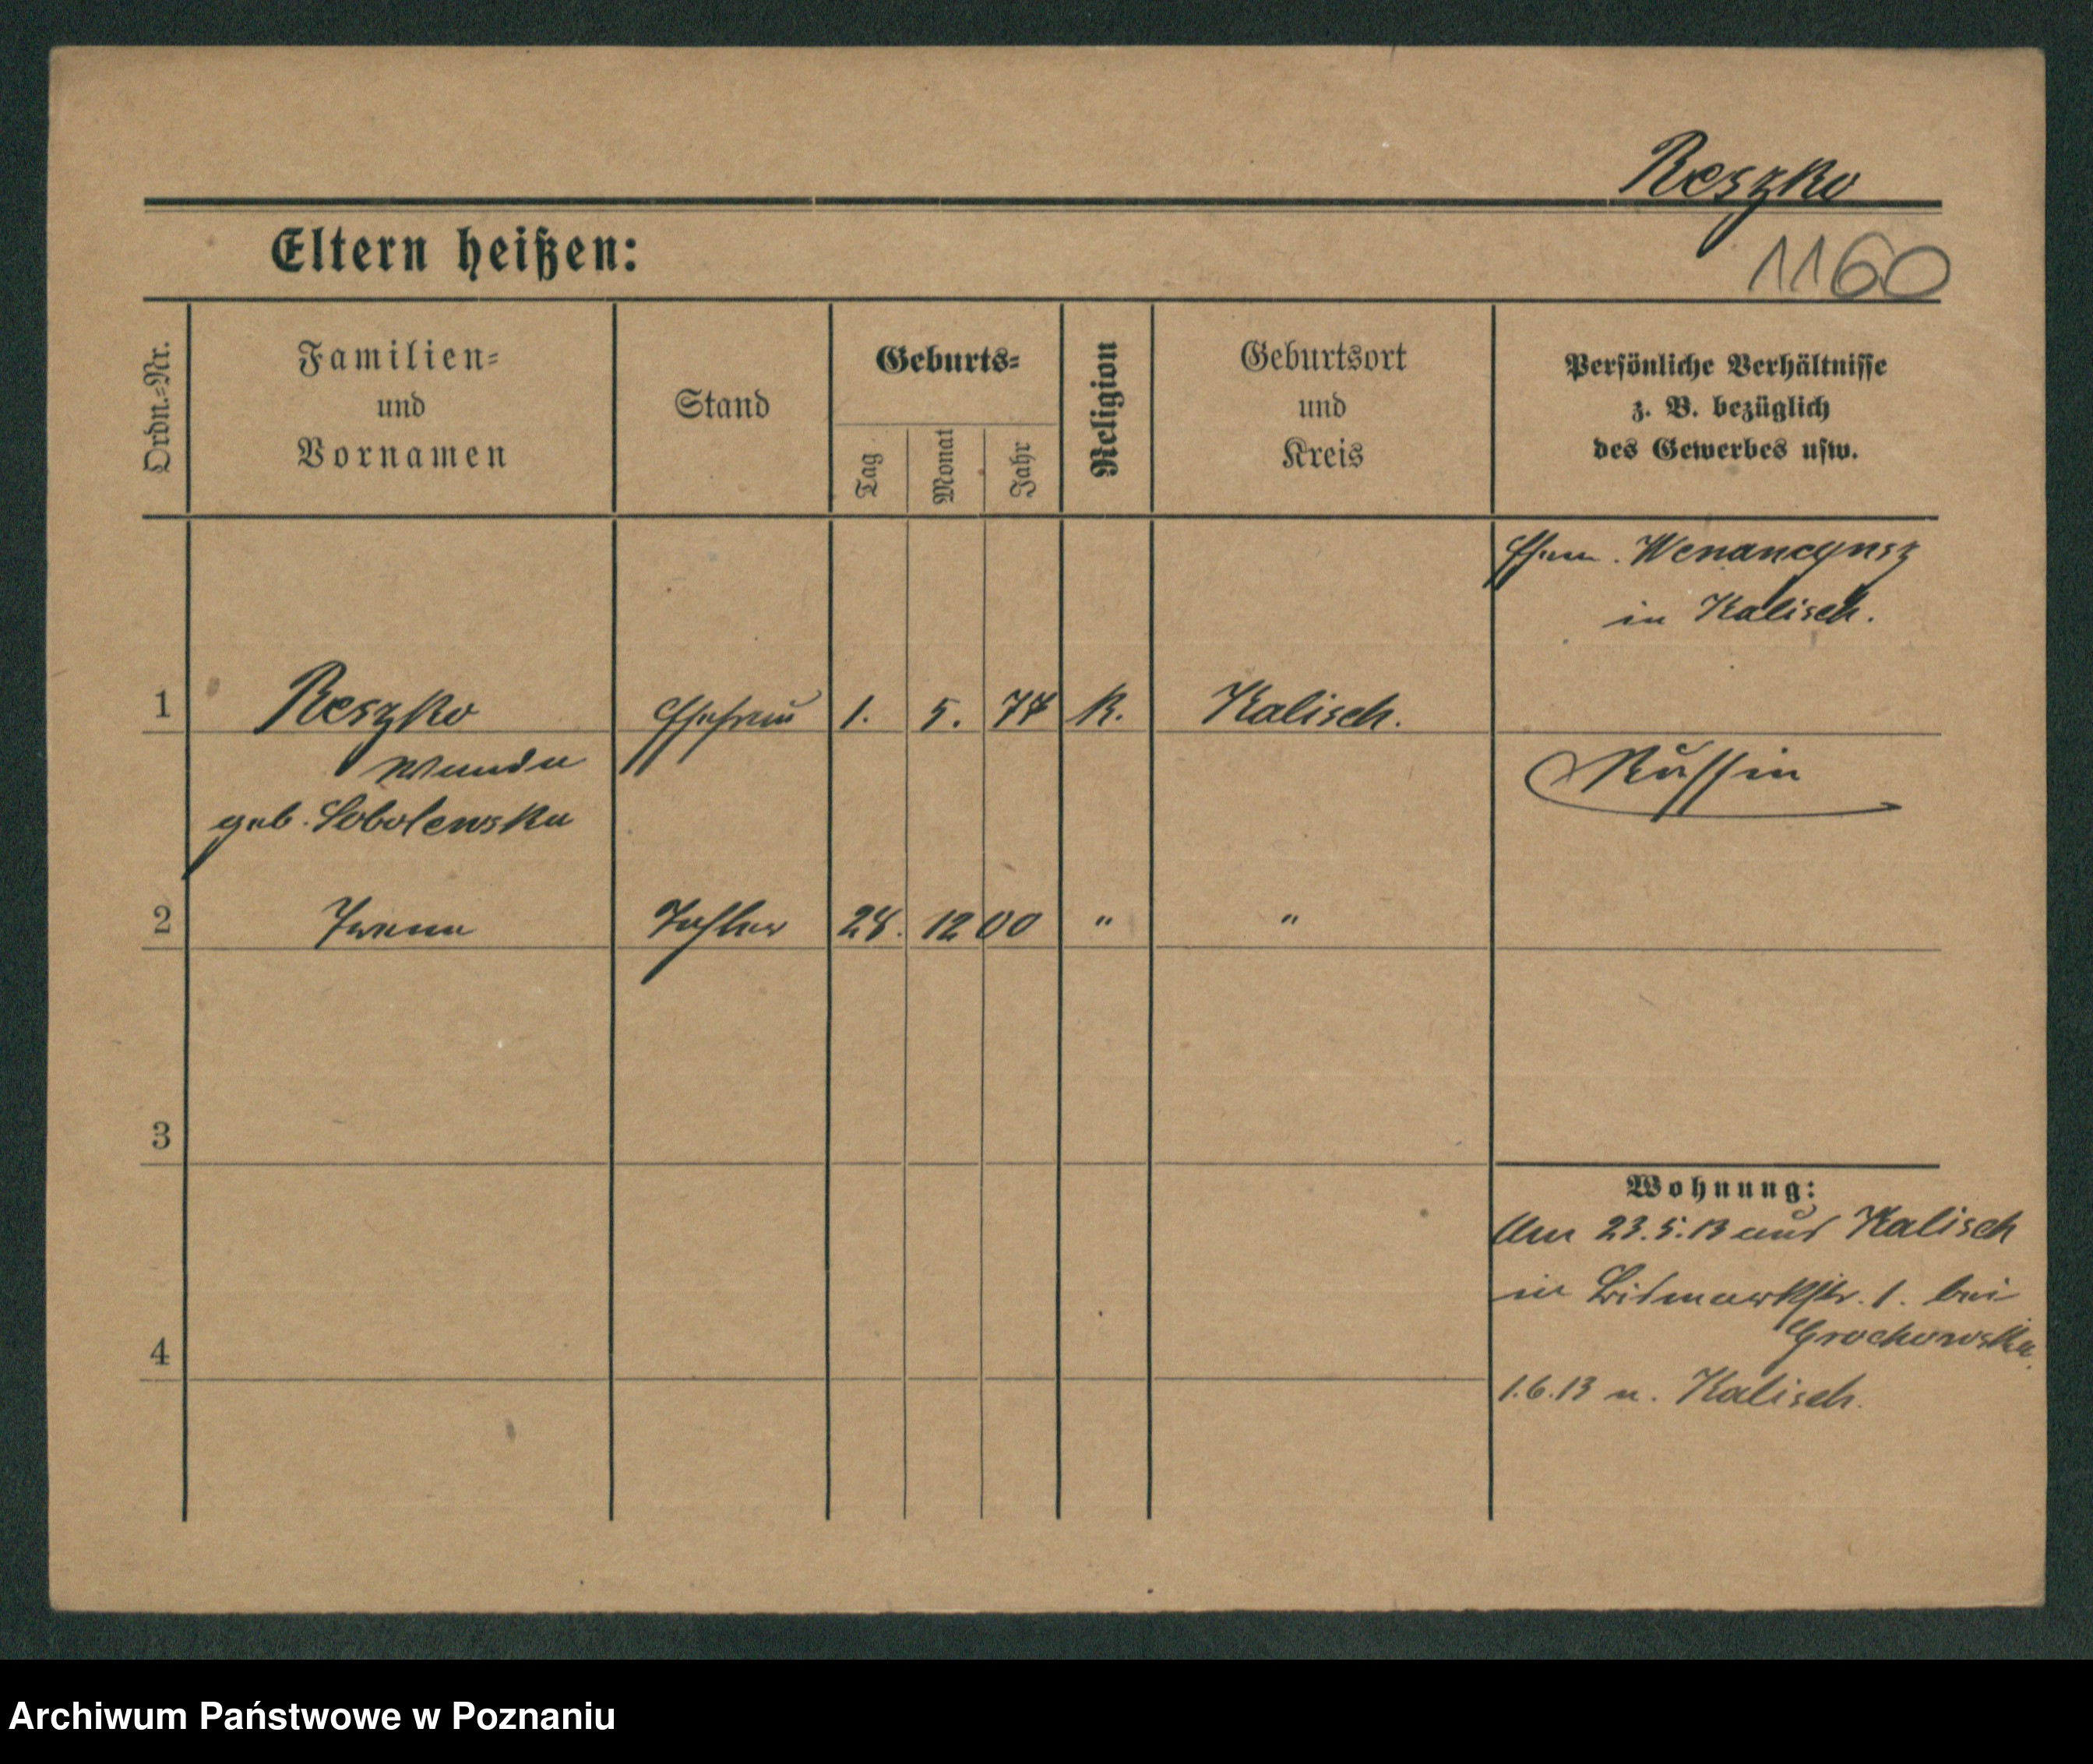 Reszko
Eltern heißen:
1160
Ordn.-Nr.
Familien-
und
Vornamen
Stand
Geburts-
Tag
Monat
Jahr
Religion
Geburtsort
und
Kreis
Persönliche Verhältnisse
z. B. bezüglich
des Gewerbes usw.
Ehem. Wenancynsz
in Kalisch.
1 Reszko Ehefrau 1. 5. 77 K. Kalisch.
Wanda
geb. Sobolewska
Russin
2 Irena Tochter 24. 12 00 " "
3
Wohnung:
Am 23.5.13 aus Kalisch
in Bismarkstr. 1. bei
Grochowska.
4
1.6.13 n. Kalisch.
Archiwum Państwowe w Poznaniu